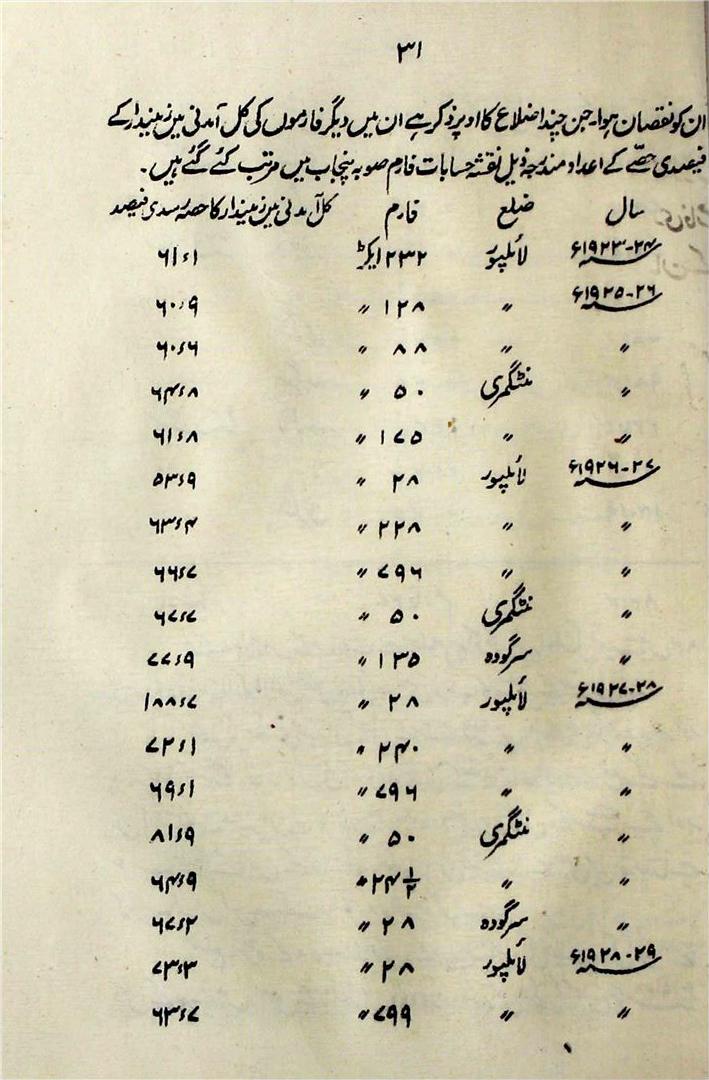 ۳۱
ان کو نقصان ہوا۔ جن چند اضلاع کا اوپر ذکر ہے ان میں دیگر فارموں کی کل آمدنی میں زمیندار کے
فیصدی حصّے کے اعداد مندرجہ ذیل نقشہ حسابات فارم صوبہ پنجاب میں مرتب کئے گئے ہیں۔
سال ضلع فارم کل آمدنی میں زمیندار کا حصہ رسدی فیصد
۲۴-۱۹۲۳ء لائلپور ۲۳۲ ایکڑ ۶۱ء۱
۲۶-۱۹۲۵ء " ۱۲۸ " ۶۰ء۹
" " ۸۸ " ۶۰ء۶
" منٹگمری ۵۰ " ۶۴ء۸
" " ۱۷۵ " ۶۱ء۸
۲۷-۱۹۲۶ء لائلپور ۲۸ " ۵۳ء۹
" " ۲۲۸ " ۶۳ء۴
" " ۷۹۶ " ۶۶ء۷
" منٹگمری ۵۰ " ۶۷ء۷
" سرگودہ ۱۳۵ " ۷۷ء۹
۲۸-۱۹۲۷ء لائلپور ۲۸ " ۱۸۸ء۷
" " ۲۴۰ " ۷۲ء۱
" " ۷۹۶ " ۶۹ء۱
" منٹگمری ۵۰ " ۸۱ء۹
" " ۲۴ ۱/۲ " ۶۴ء۹
" سرگودہ ۲۸ " ۶۷ء۲
۲۹-۱۹۲۸ء لائلپور ۲۸ " ۷۳ء۳
" " ۷۹۹ " ۶۳ء۷